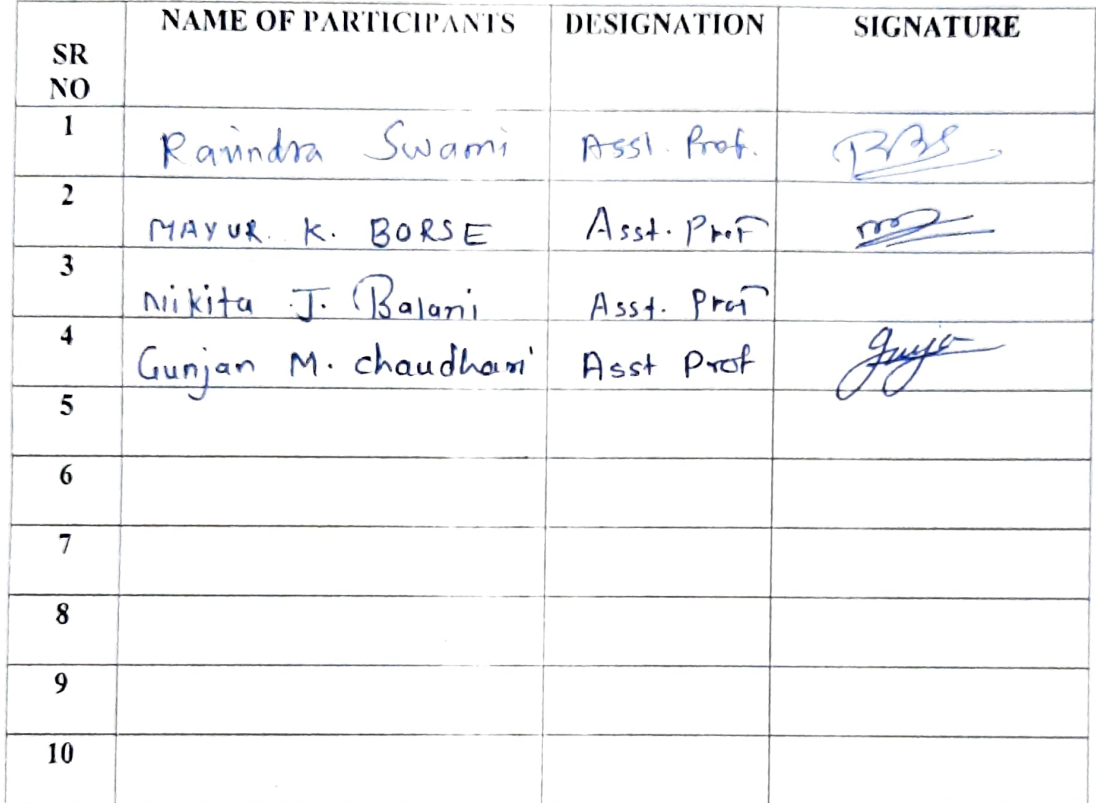 SR NO NAME OF PARTICIPANTS DESIGNATION SIGNATURE
1 Ravindra Swami Asst. Prof.
2 MAYUR. K. BORSE Asst. Prof
3 Nikita J. Balani Asst. Prof
4 Gunjan M. chaudhari Asst Prof
5
6
7
8
9
10